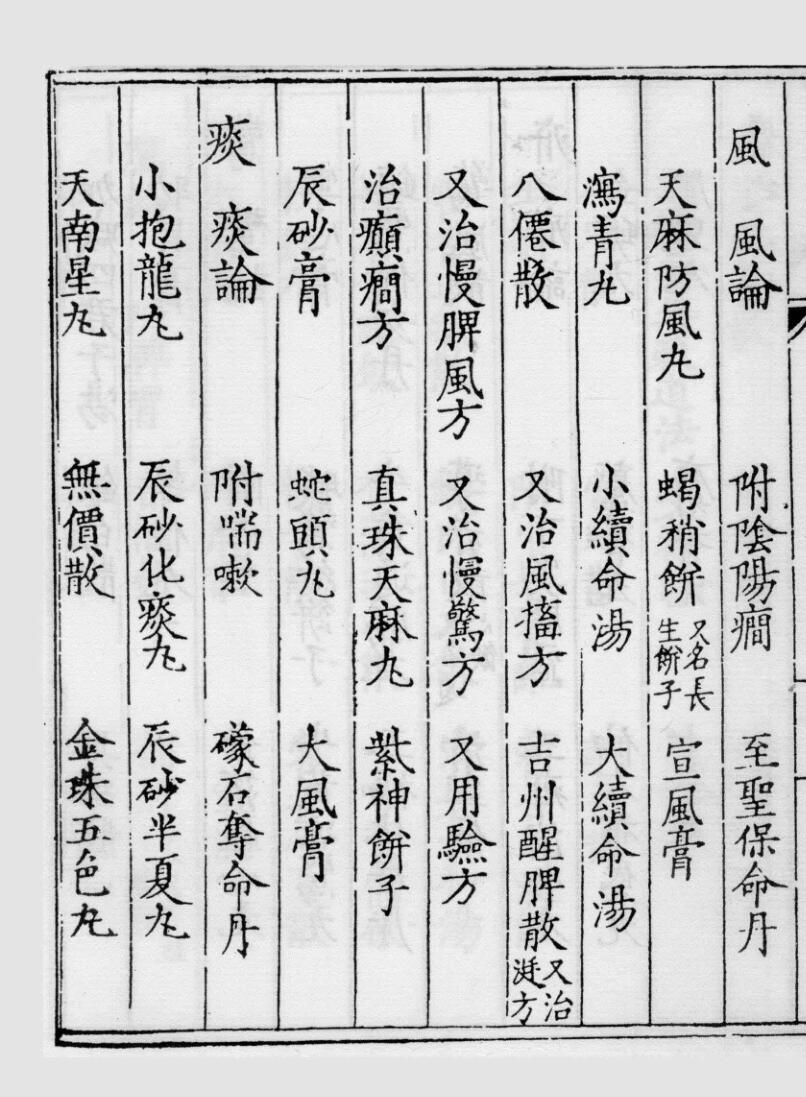 風　風論　附陰陽癎　至聖保命丹
天麻防風丸　蝎稍餅又名長生餅子　宣風膏
瀉青丸　小續命湯　大續命湯
八僊散　又治風搐方　吉州醒脾散又治涎方
又治慢脾風方　又治慢驚方　又用驗方
治癲癎方　真珠天麻丸　紫神餅子
辰砂膏　蛇頭丸　大風膏
痰　痰論　附喘嗽　礞石奪命丹
小抱龍丸　辰砂化痰丸　辰砂半夏丸
天南星丸　無價散　金珠五色丸